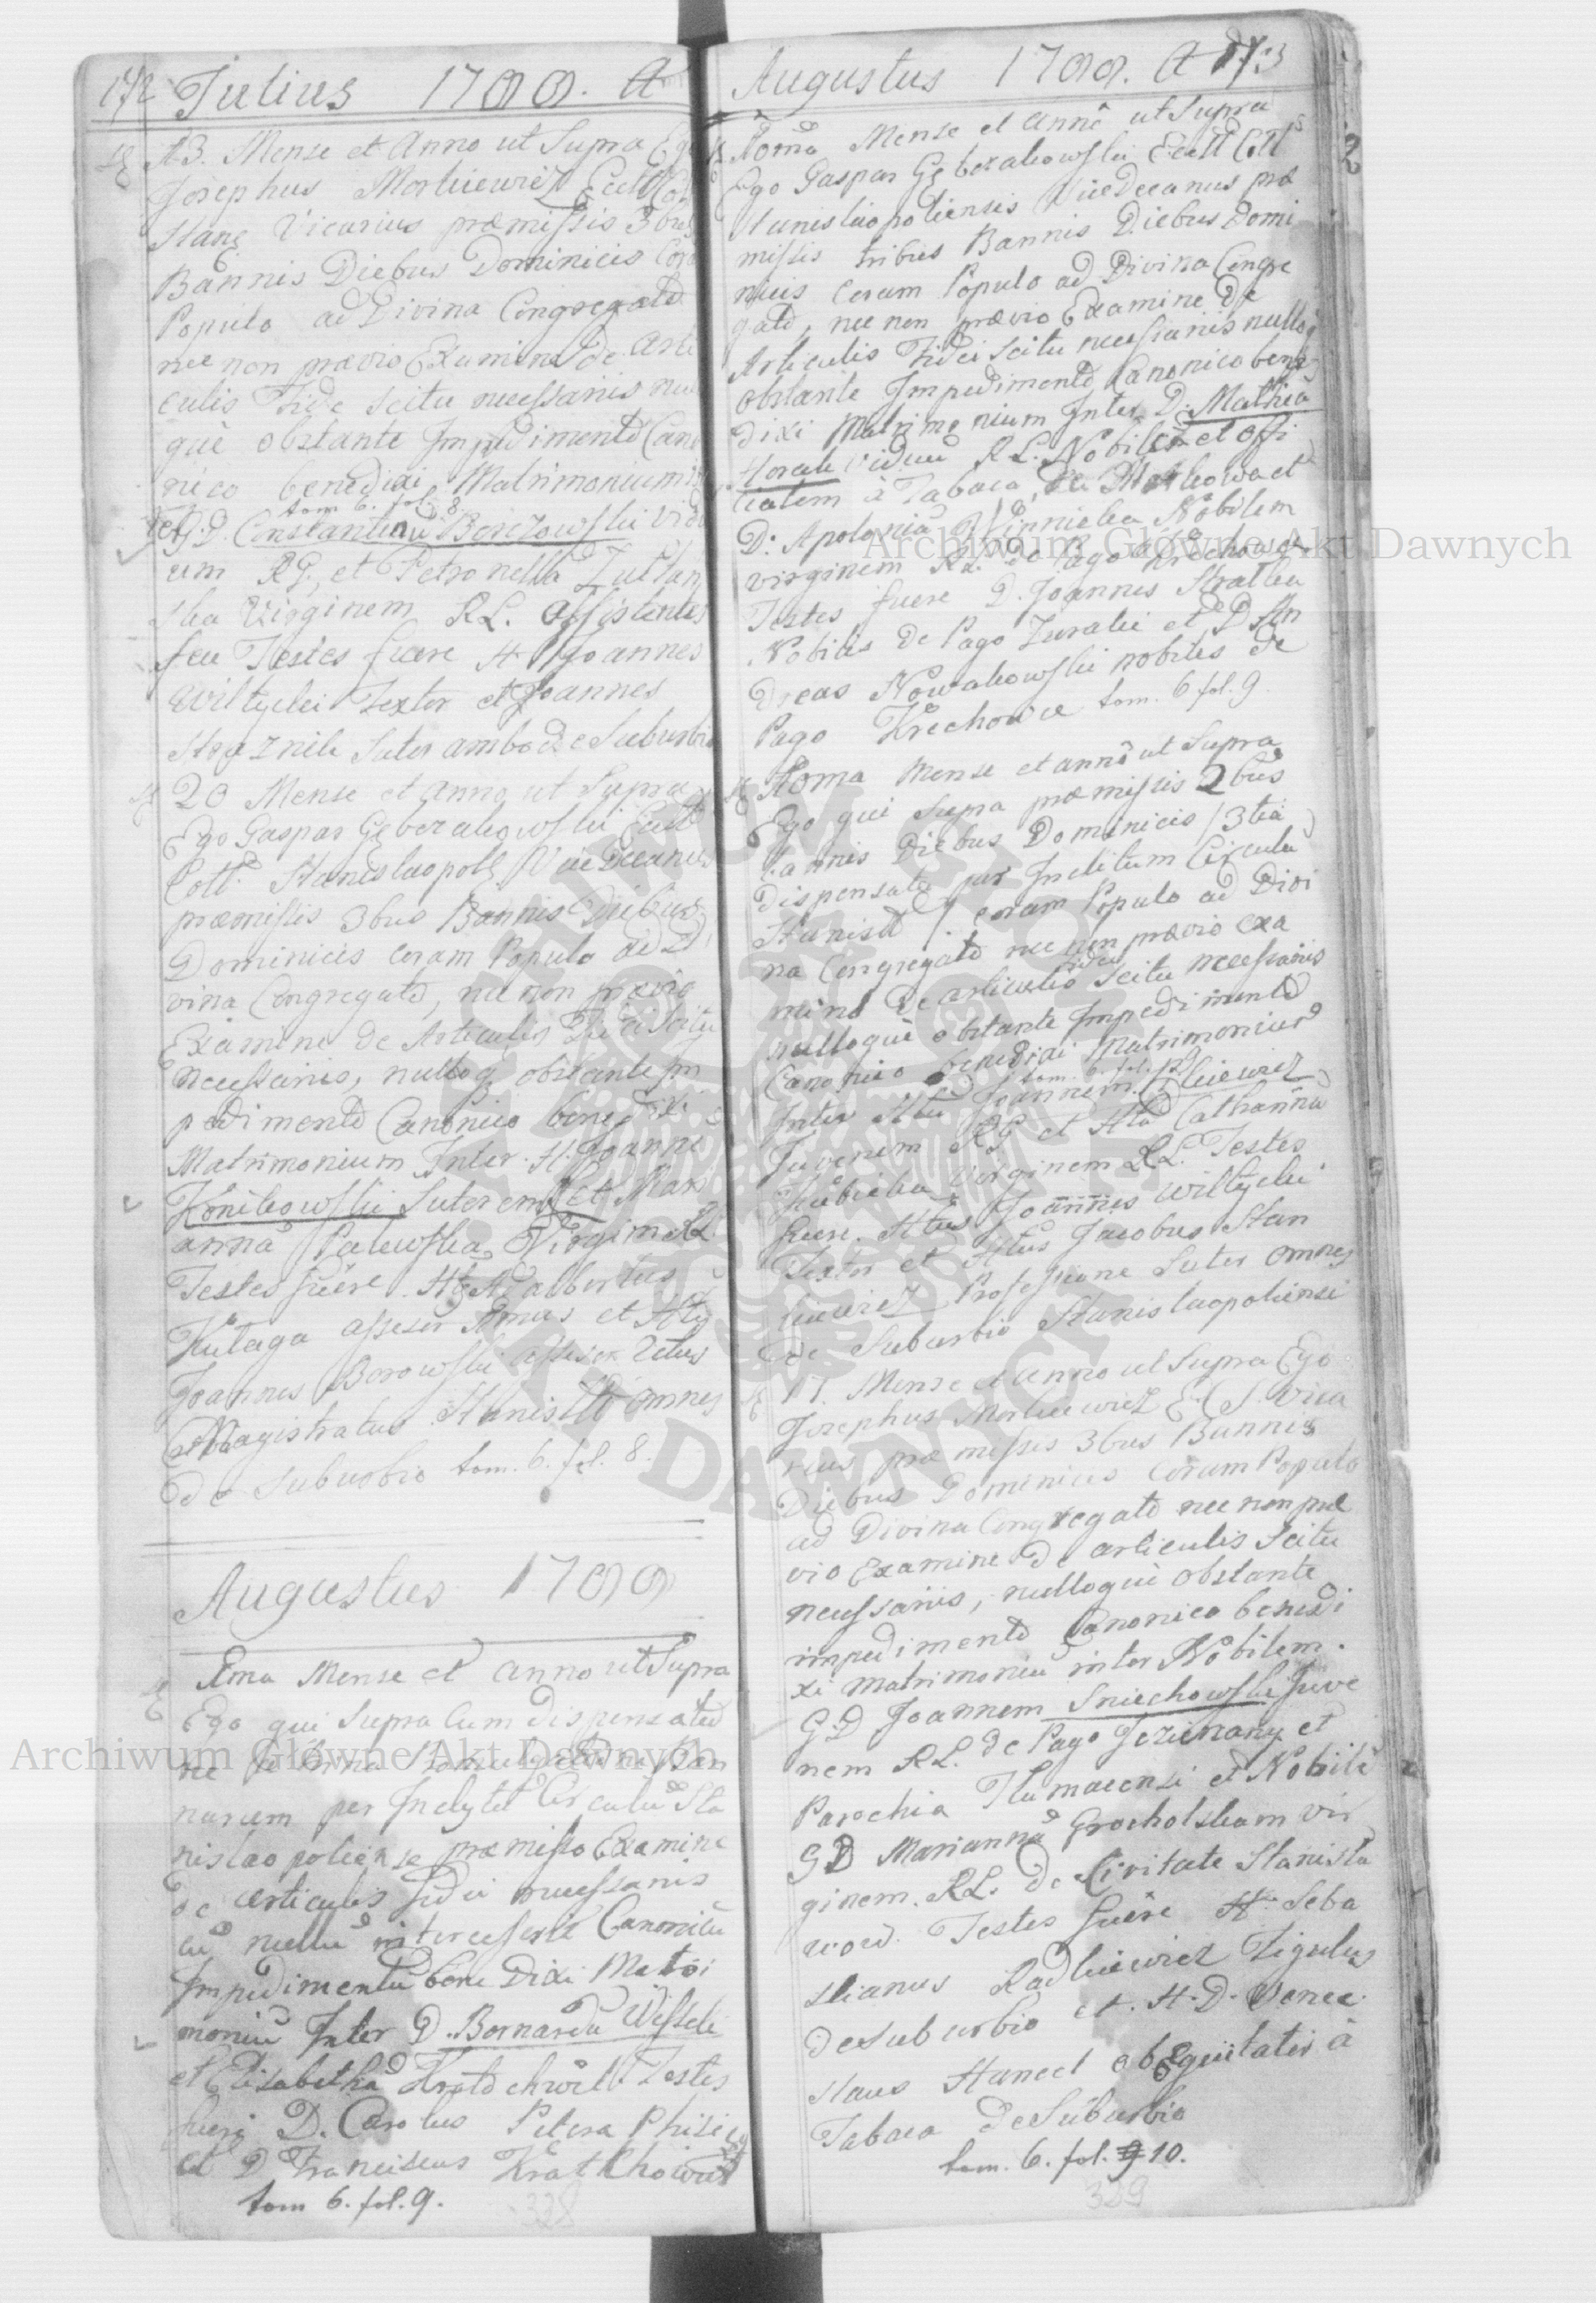 172 Julius 1799. A
13. Mense et Anno ut Supra Ego
Josephus Morkiewicz Eccll Coll
Stanę Vicarius præmissis 3bus
Bannis Diebus Dominicis Cora
Populo ad Divina Congregato
nec non prævio Examine de Arti
culis Fide Scitu necessariis nullo
què obstante Impedimento Cano
nico benedixi Matrimonium in
tom 6. fol. 8.
ter G.D. Constantinu Borzowski Vidu
um RG, et Petronella
ska Virginem RL. assistentes
seu Testes fuere H Joannes
Wiltycki Textor et Joannes
Straznik Sutor ambo de Suburbio
20 Mense et Anno ut Supra
Ego Gaspar Gęberakowski Eccll
Coll. Stanislaopolę Vice Decanus
præmissis 3bus Bannis Diebus
Dominicis Coram Populo ad Di
vina Congregato, nec non prævio
Examine de Articulis Fidei Scitu
necessariis, nulloq obstante Im
pedimento Canonico benedixi
Matrimonium Inter H. Joanne
Konikowski Sutorem et Mari
anna Palewska Virginem RL
Testes fuêre Adalbertus
Kutaga assesor Primus et
Joannes Borowski assesor 2dus
Magistratus omnes
de Suburbio tom. 6. fol. 8.
Augustus 1799
Ima Mense et Anno ut Supra
Ego qui Supra Cum dispensatio
ne Ban
narum per Inclytu Circulu Sta
nislaopoliense præmisso Examine
de articulis fidei necessariis
cu nullu intercesserit Canonicu
Impedimentu bene dixi Matri
moniu Inter D. Bernardu Wissek
et Elisabetha Testes
fuere D. Carolus Petera
et D Franciscus
tom 6. fol. 9.
328
Augustus 1799. A 173
Mense et anno ut Supra
Ego Gaspar Gęberakowski Eccll Coll
Stanislaopoliensis ViceDecanus præ
missis tribus Bannis Diebus Domi
nicis Coram Populo ad Divina Congre
gato, nec non prævio Examine De
Articulis Fidei Scitu necessariis nulloq
obstante Impedimento Canonico bene
dixi Matrimonium Inter D. Mathia
Horak viduu RL. Nobile et Offi
cialem à Tabaca de et
D: Apolonia Nobilem
virginem RL. De Pago Krechowce
Testes fuere D. Joannes
Nobilis de Pago Zuraki et D An
dreas Nowakowski nobiles de
Pago Krechowce tom. 6 fol. 9.
Mense et anno ut Supra
Ego qui Supra præmissis 2bus
bannis Diebus Dominicis /3tia
dispensata per Inclitum Circulu
Stanisll / coram Populo ad Divi
na Congregato nec non prævio exa
mine De articulis fidei Scitu necessariis
nulloquè obstante Impedimento
Canonico benedixi Matrimonium
tom. 6. fol. 10
Inter Joannem
Juvenem RG et Catharina
Virginem RL. Testes
fuere Joannes Wiltycki
Textor et Jacobus Stan
kiewicz Professione Sutor omnes
de Suburbio Stanislaopoliensi
17. Mense et anno ut Supra Ego
Josephus Morkiewicz E. C. S. Vica
rius præmissis 3bus Bannis
Diebus Dominicis Coram Populo
ad Divina Congregato nec non præ
vio Examine De articulis Scitu
necessariis, nulloquè obstante
impedimento Canonico benedi
xi matrimoniu inter Nobilem
G.D Joannem Sniechowski Juve
nem RL. de Pago Jezierzany et
Parochia Tlumacensi et Nobile
GD Marianna Grocholskam vir
ginem. RL. De Civitate Stanisla
wow. Testes fuêre H. Seba
stianus Radkiewicz Figulus
de suburbio et. H. D. Vence
slaus Hanect obEquitatis à
Tabaca De Suburbio
tom. 6. fol. 10.
329
Archiwum Główne Akt Dawnych
Archiwum Główne Akt Dawnych